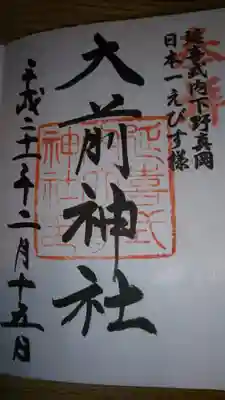 奉拝
延喜式内下野真岡
日本一えびす様
大前神社
平成二十二年二月十五日